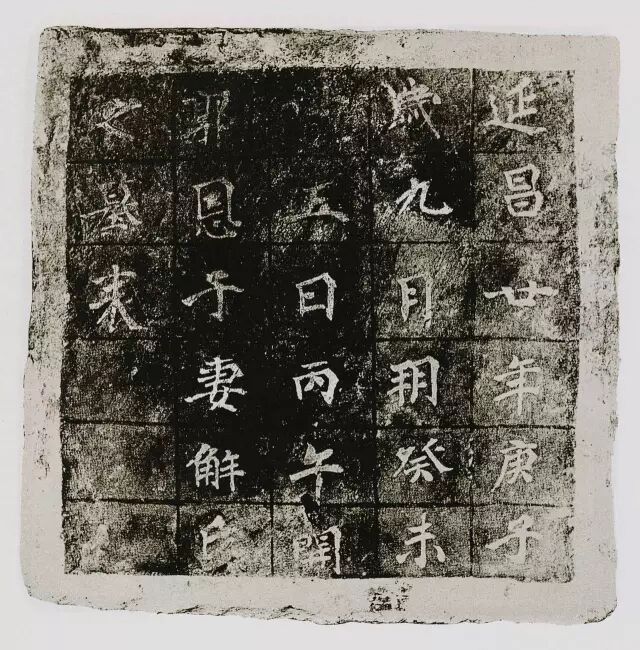 延昌廿年庚子
歲九月朔癸未
五日丙午
郭恩子妻解氏
之墓表